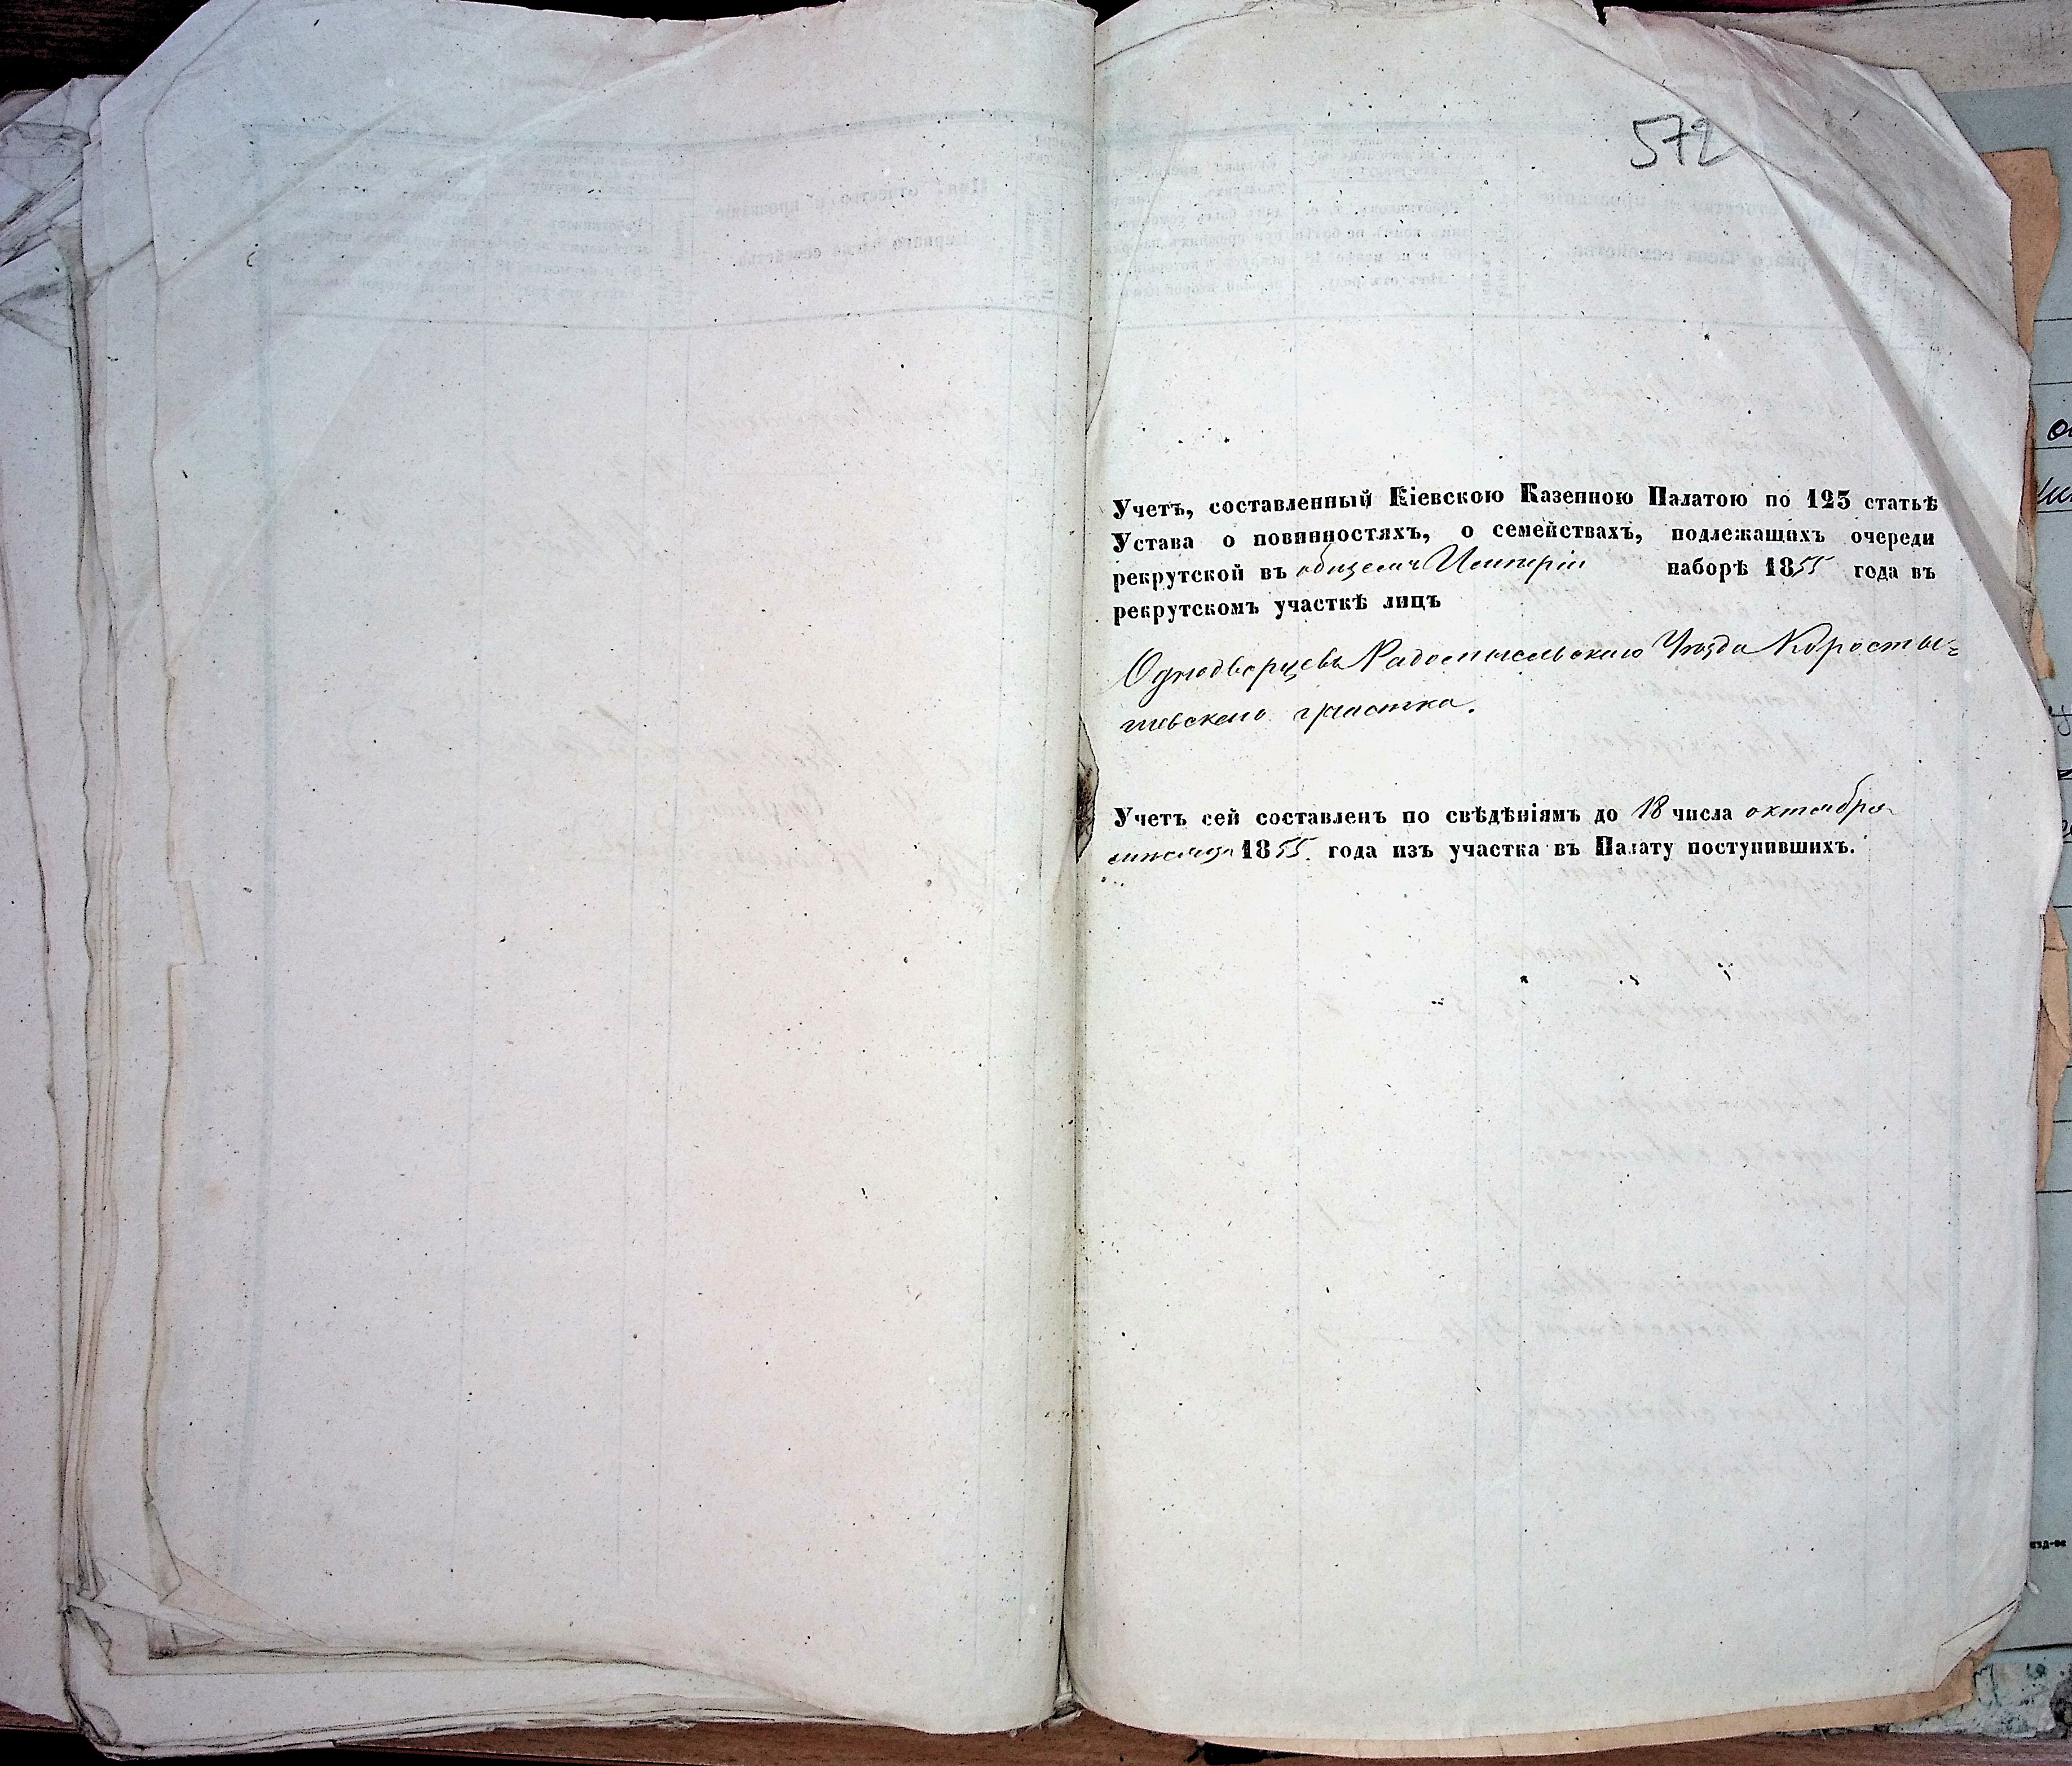 572
Учетъ, составленный Кіевскою Казенною Палатою по 123 статьѣ
Устава о повинностяхъ, о семействахъ, подлежащихъ очереди
рекрутской въ общемъ Имперіи наборѣ 1855 года въ
рекрутскомъ участкѣ лицъ
Однодворцевъ Радомысльскаго Уѣзда Коросты-
шевскаго участка.
Учетъ сей составленъ по свѣдѣніямъ до 18 числа октября
мѣсяца 1855 года изъ участка въ Палату поступившихъ.